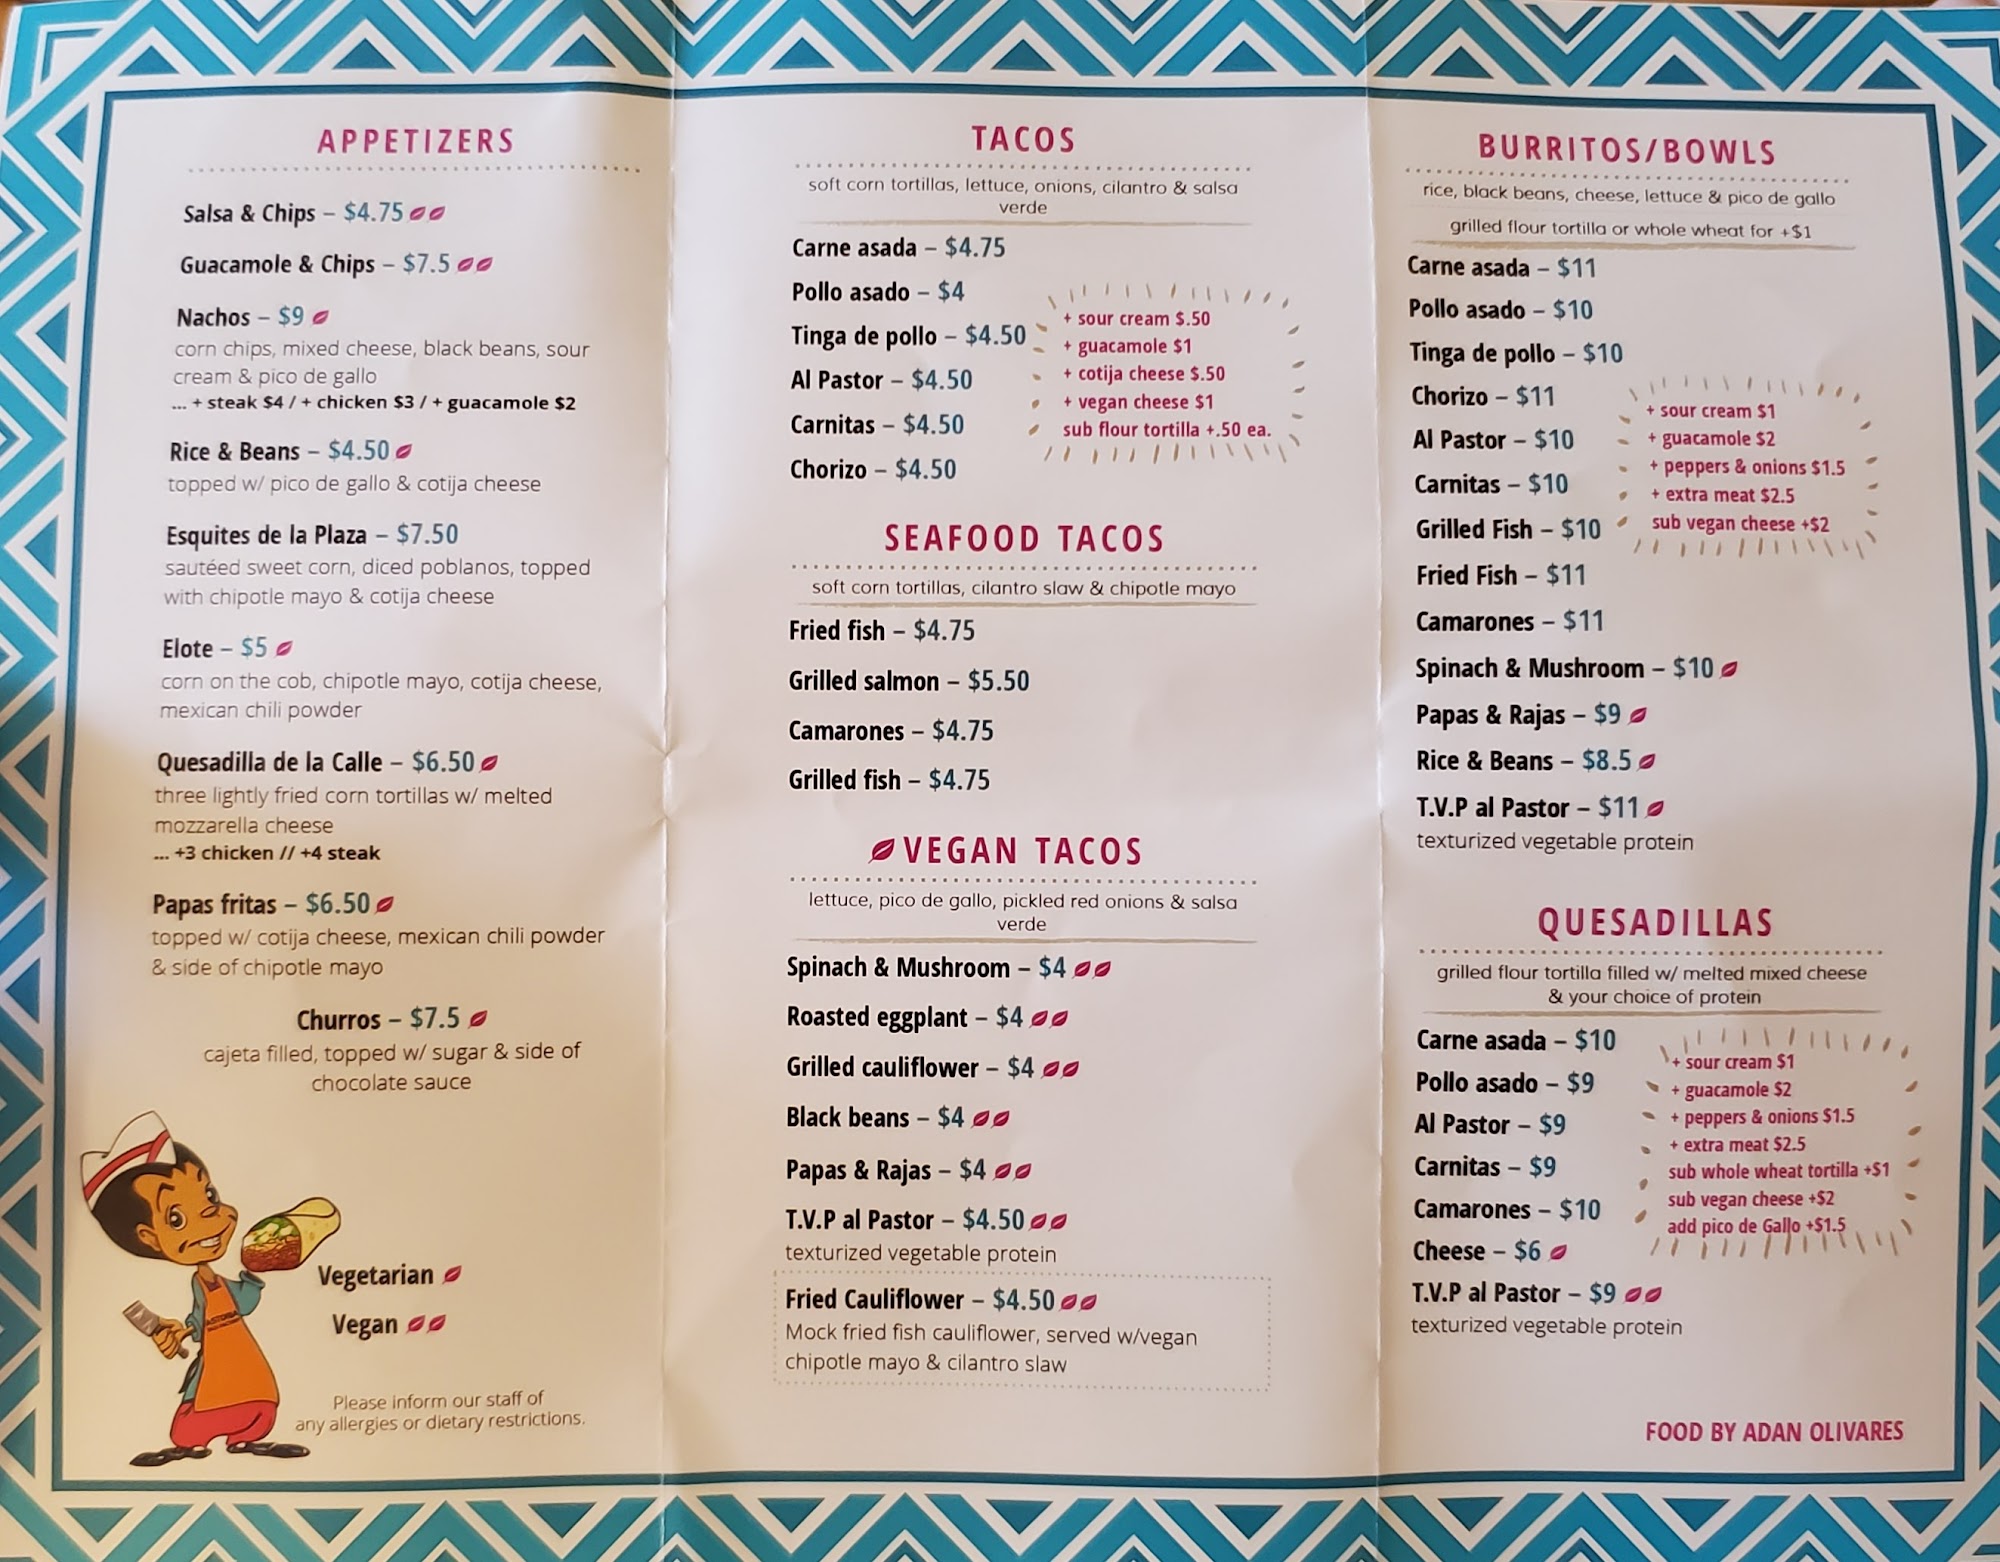 APPETIZERS
Salsa & Chips – $4.75
Guacamole & Chips – $7.5
Nachos – $9
corn chips, mixed cheese, black beans, sour
cream & pico de gallo
... + steak $4 / + chicken $3 / + guacamole $2
Rice & Beans – $4.50
topped w/ pico de gallo & cotija cheese
Esquites de la Plaza – $7.50
sautéed sweet corn, diced poblanos, topped
with chipotle mayo & cotija cheese
Elote – $5
corn on the cob, chipotle mayo, cotija cheese,
mexican chili powder
Quesadilla de la Calle – $6.50
three lightly fried corn tortillas w/ melted
mozzarella cheese
... +3 chicken // +4 steak
Papas fritas – $6.50
topped w/ cotija cheese, mexican chili powder
& side of chipotle mayo
Churros – $7.5
cajeta filled, topped w/ sugar & side of
chocolate sauce
Vegetarian
Vegan
Please inform our staff of
any allergies or dietary restrictions.
TACOS
soft corn tortillas, lettuce, onions, cilantro & salsa
verde
Carne asada – $4.75
Pollo asado – $4
Tinga de pollo – $4.50
Al Pastor – $4.50
Carnitas – $4.50
Chorizo – $4.50
+ sour cream $.50
+ guacamole $1
+ cotija cheese $.50
+ vegan cheese $1
sub flour tortilla +.50 ea.
SEAFOOD TACOS
soft corn tortillas, cilantro slaw & chipotle mayo
Fried fish – $4.75
Grilled salmon – $5.50
Camarones – $4.75
Grilled fish – $4.75
VEGAN TACOS
lettuce, pico de gallo, pickled red onions & salsa
verde
Spinach & Mushroom – $4
Roasted eggplant – $4
Grilled cauliflower – $4
Black beans – $4
Papas & Rajas – $4
T.V.P al Pastor – $4.50
texturized vegetable protein
Fried Cauliflower – $4.50
Mock fried fish cauliflower, served w/vegan
chipotle mayo & cilantro slaw
BURRITOS/BOWLS
rice, black beans, cheese, lettuce & pico de gallo
grilled flour tortilla or whole wheat for +$1
Carne asada – $11
Pollo asado – $10
Tinga de pollo – $10
Chorizo – $11
Al Pastor – $10
Carnitas – $10
Grilled Fish – $10
Fried Fish – $11
Camarones – $11
Spinach & Mushroom – $10
Papas & Rajas – $9
Rice & Beans – $8.5
T.V.P al Pastor – $11
texturized vegetable protein
+ sour cream $1
+ guacamole $2
+ peppers & onions $1.5
+ extra meat $2.5
sub vegan cheese +$2
QUESADILLAS
grilled flour tortilla filled w/ melted mixed cheese
& your choice of protein
Carne asada – $10
Pollo asado – $9
Al Pastor – $9
Carnitas – $9
Camarones – $10
Cheese – $6
T.V.P al Pastor – $9
texturized vegetable protein
+ sour cream $1
+ guacamole $2
+ peppers & onions $1.5
+ extra meat $2.5
sub whole wheat tortilla +$1
sub vegan cheese +$2
add pico de Gallo +$1.5
FOOD BY ADAN OLIVARES